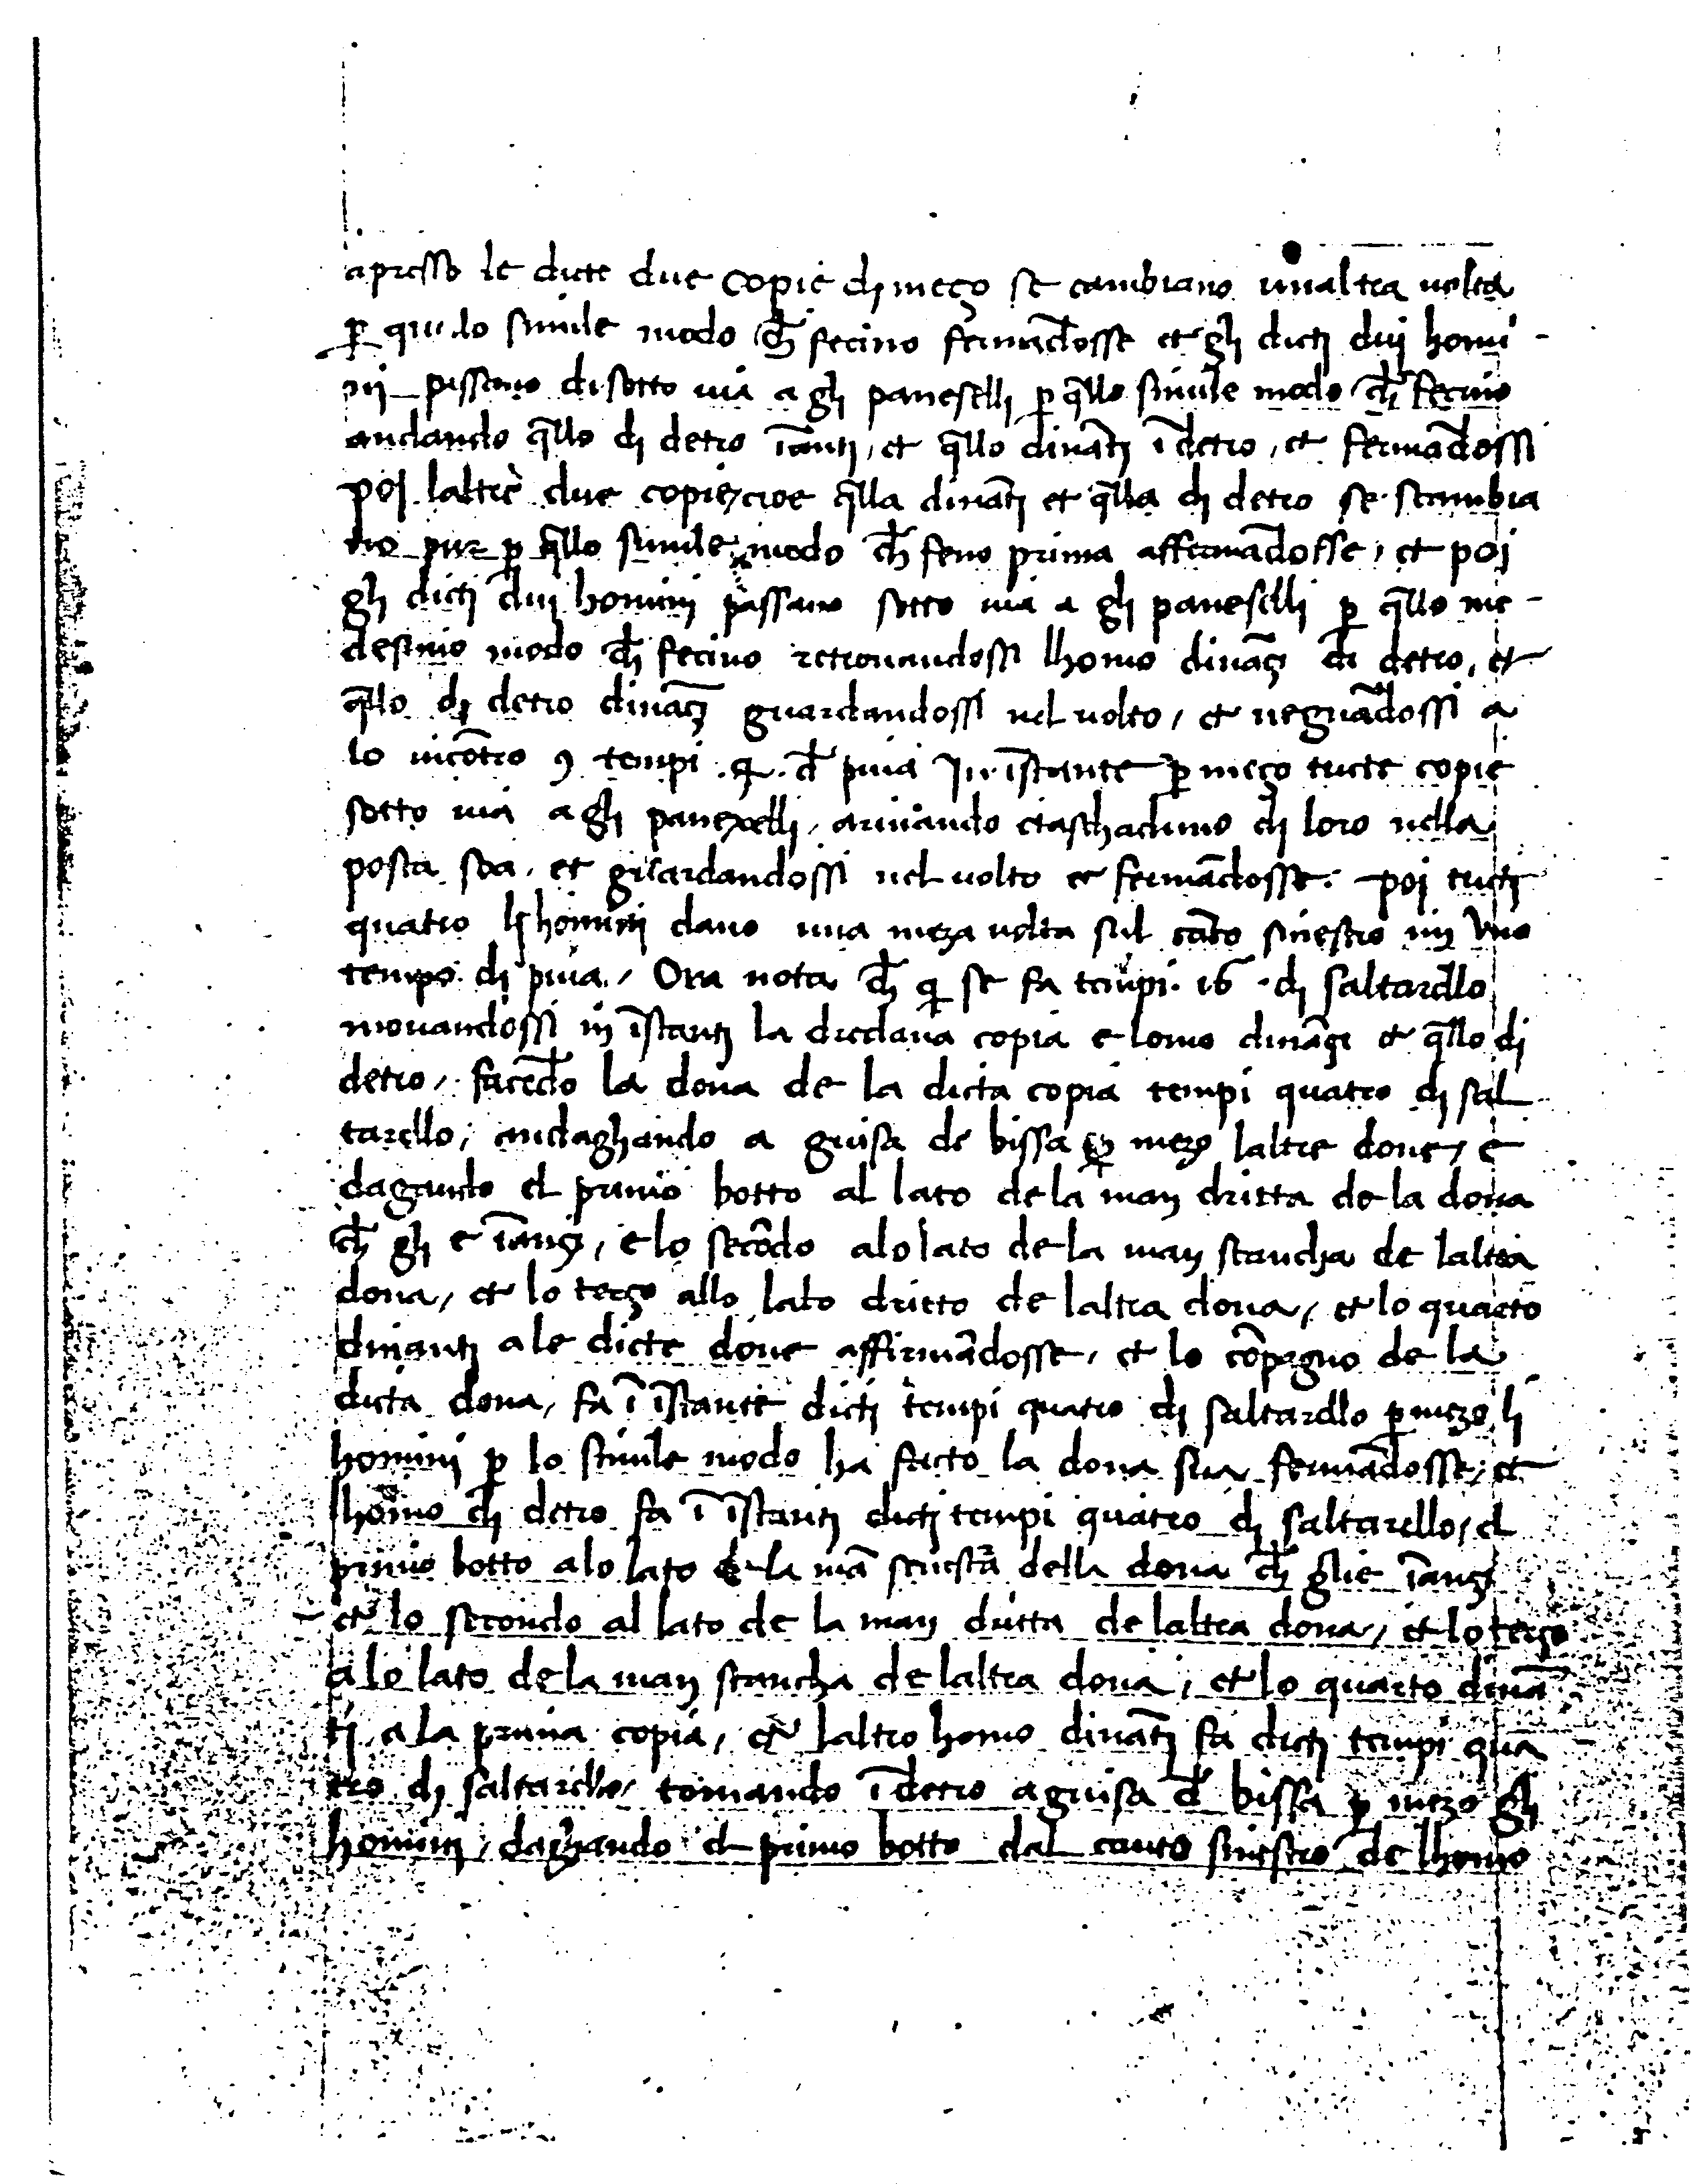 apresso le dicte due copie dj meço se cambiano unaltra uolta
p̱ quelo simile modo ch̄ fecino fermādosse et glj dictj duj homi-
nj passano disotto uia a glj paneselli p̱ q̄llo simile modo ch̄ fecino
andando q̄llo dj detro īantj, et q̄llo dināntj ī detro, et fermādossi
poj laltre due copie, cioe q̄lla dinātj et q̄lla dj detro se scambia
no pur p̱ q̄llo simile modo ch̄ feno prima affermādosse, et poj
glj dictj duj hominj passano sotto uia a glj paneselli p̱ q̄llo me-
desimo modo ch̄ fecino retrouandossi lhomo dināçj dj detro, et
q̄llo dj detro dināçj guardandossi nel uolto, et uegnādossi a
lo incōtro 9 tempi .q. d̄ piua In īstante p̱ meço tucte copie
sotto uia a glj panexelli, ariuando ciaschaduno dj loro nella
posta soa, et guardandossi nel uolto et fermādosse. poj tuctj
quatro lj hominj dano una meza uolta sul cāto sinestro inj uno
tempo dj piua. Ora nota ch̄ q̱ se fa tempi .16. dj saltarello
mouandossi inj īstantj la dredana copia e lomo dināçi et q̄llo dj
detro, facēdo la dona de la dicta copia tempi quatro dj sal
tarello, andaghando a guisa de bissa p̱ mezo laltre done, e
dagando el primo botto al lato de la man dritta de la dona
ch̄ glj e īançj, e lo secōdo alo lato de la man stancha de laltra
dona, et lo terço allo lato dricto de laltra dona, et lo quarto
dinantj a le dicte done affirmādosse, et lo cōpagno de la
dicta dona, fa ī īstante dictj tempi quatro dj saltarello p̱ mezo lj
hominj p̱ lo simile modo ha facto la dona sua fermādosse, et
lhomo dj detro fa ī īstantj dictj tempi quatro dj saltarello, el
primo botto alo lato de la mā senestra della dona ch̄ glie īançj
et lo secondo al lato de la man dritta de laltra dona, et lo terzo
a lo lato de la man stancha de laltra dona, et lo quarto dinā
tj a la prima copia, et laltro homo dinātj fa dictj tempi qua
tro dj saltarello, tornando ī detro a guisa d̄ bissa p̱ mezo glj
hominj, daghando el primo botto dal canto sinestro de lhomo